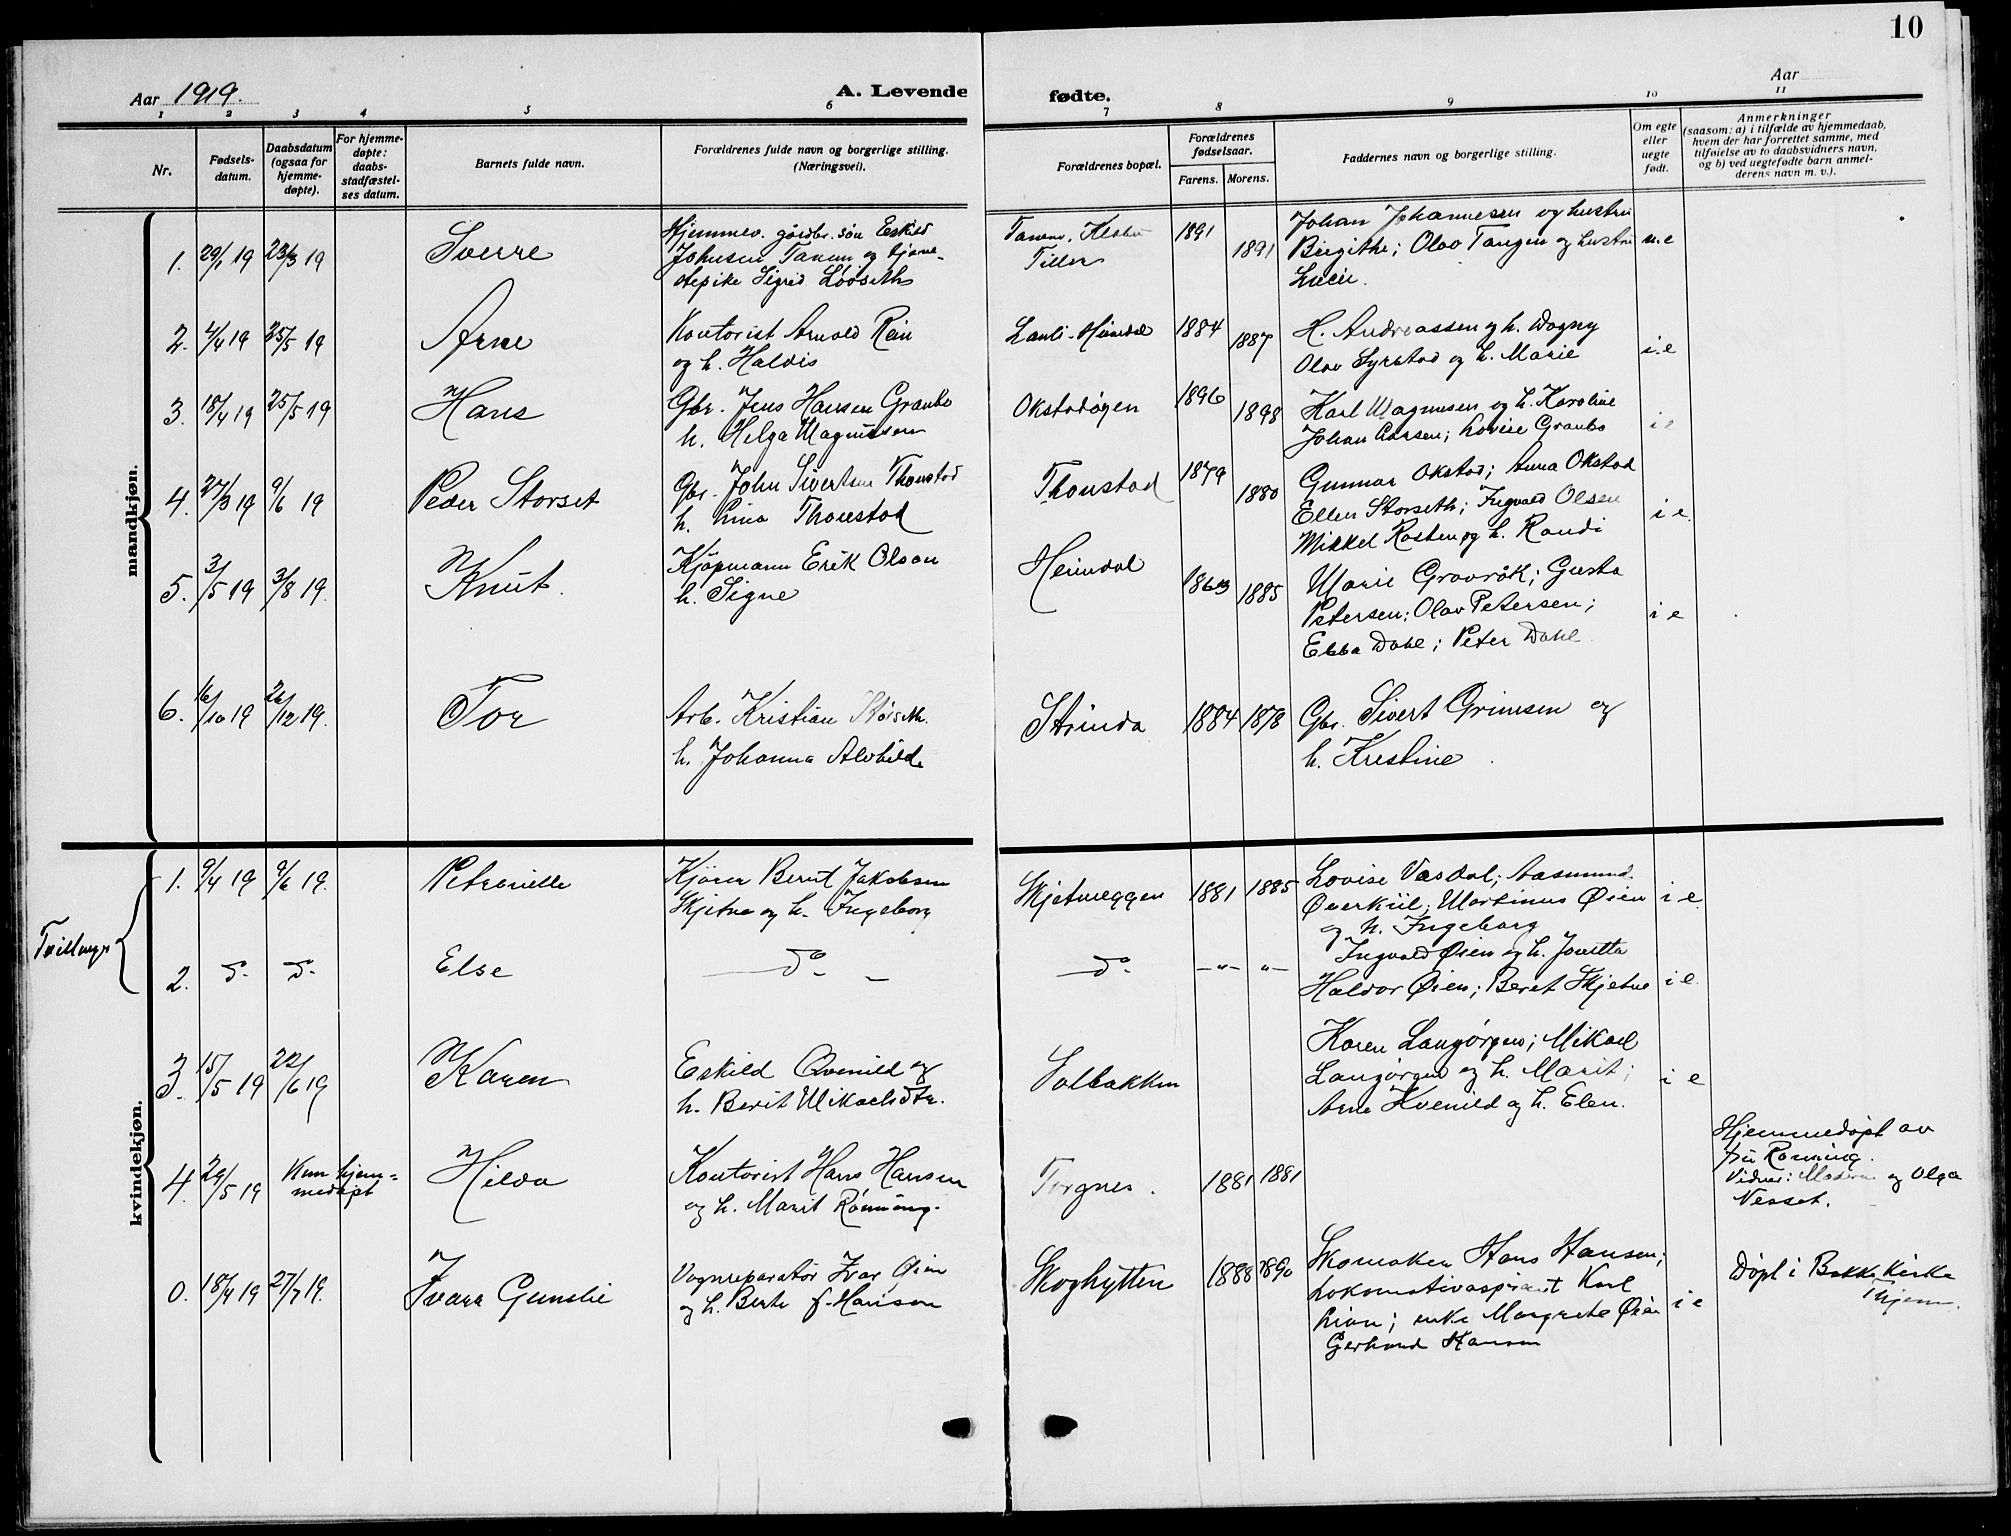 10
Aar 1919.
A. Levende
fødte.
Aar
1 2 3 4 5 6 7 8 9 10 11
Nr.
Fødsels-
datum.
Daabsdatum
(ogsaa for
hjemme-
døpte).
For hjemme-
døpte:
daabs-
stadfæstel-
ses datum.
Barnets fulde navn.
Forældrenes fulde navn og borgerlige stilling.
(Næringsvei).
Forældrenes bopæl.
Forældrenes
fødselsaar.
Farens. Morens.
Faddernes navn og borgerlige stilling.
Om egte
eller
uegte
født.
Anmerkninger
(saasom: a) i tilfælde av hjemmedaab,
hvem der har forrettet samme, med
tilføielse av to daabsvidners navn,
og b) ved uegtefødte barn anmel-
derens navn m. v.).
mandkjøn.
1. 29/1 19 23/3 19
Sverre
Hjemmev. gårdbr. søn Eskild
Johnsen Tanem og tjene-
stepike Sigrid Löoseth
Tanem, Klæbu
Tiller
1891 1891
Johan Johannesen og hustru
Birgithe; Olav Tangen og hustru
Lucie.
u.e
2. 4/4 19 25/5 19
Arne
Kontorist Arnold Rein
og h. Haldis
Lauli-Heimdal
1884 1887
H. Andreassen og h. Dagny
Olav Syrstad og h. Marie
i.e
3. 18/4 19 25/5 19
Hans
Gbr. Jens Hansen Graubo
h. Helga Magnussen
Okstadøgen
1896 1898
Karl Magnusen og h. Karoline
Johan Aarsen; Lovise Graubo
i e
4. 27/3 19 9/6 19
Peder Storset
Gbr. John Sivertsen Thonstad
h. Lina Thonstad
Thonstad
1879 1880
Gunnar Okstad; Anna Okstad
Ellen Storseth; Ingvald Olsen
Mikkel Rosten og h. Randi
i e.
5. 3/5 19 3/8 19.
Knut.
Kjøpmann Erik Olson
h. Signe
Heimdal
1863 1885
Marie Gravrök; Gusta
Petersen; Olav Petersen;
Ebba Dahl; Peter Dahl
i e
6. 16/10 19 26/12 19.
Tor
Arb. Kristian
h. Johanna Alvhilde
Strinda
1884 1878
Gbr. Sivert Grimsen og
h. Kristine
kvindekjøn.
Tvillinger
1. 9/4 19 9/6 19.
Petronelle
Kjörer Bernt Jakobsen
Skjetne og h. Ingeborg
Skjetneggen
1881 1885
Lovise Vasdal; Aasmund
Överkiil; Martinus Øien
og h. Ingeborg
i e.
2. do do
Else
do
do
-"- -"-
Ingvald Øien og h. Jonetta
Haldor Øien; Beret Skjetne
i e.
3. 15/5 19 22/6 19
Karen
Eskild Qvenild og
h. Berit Mikaelsdtr.
Solbakken
Karen Langörgen; Mikael
Langörgen og h. Marit;
Arne Kvenild og h. Elen.
i e
4. 29/5 19 Kun hjem-
medøpt
Hilda
Kontorist Hans Hansen
og h. Marit Rönning.
Torgnes.
1881 1881
Hjemmedøpt av
fru Rønning.
Vidner: Moderen og Olga
Nesset.
0. 18/4 19 27/7 19.
Ivara Gunelie
Vognreparatør Ivar Øien
og h. Berte f. Hansen
Skoghytten
1888 1890
Skomaker Hans Hansen;
Lokomotivaspirant Karl
Lian; enke Margrete Øien
Gerhard Hansen
i e
Døpt i Bakke Kirke
Thjem.